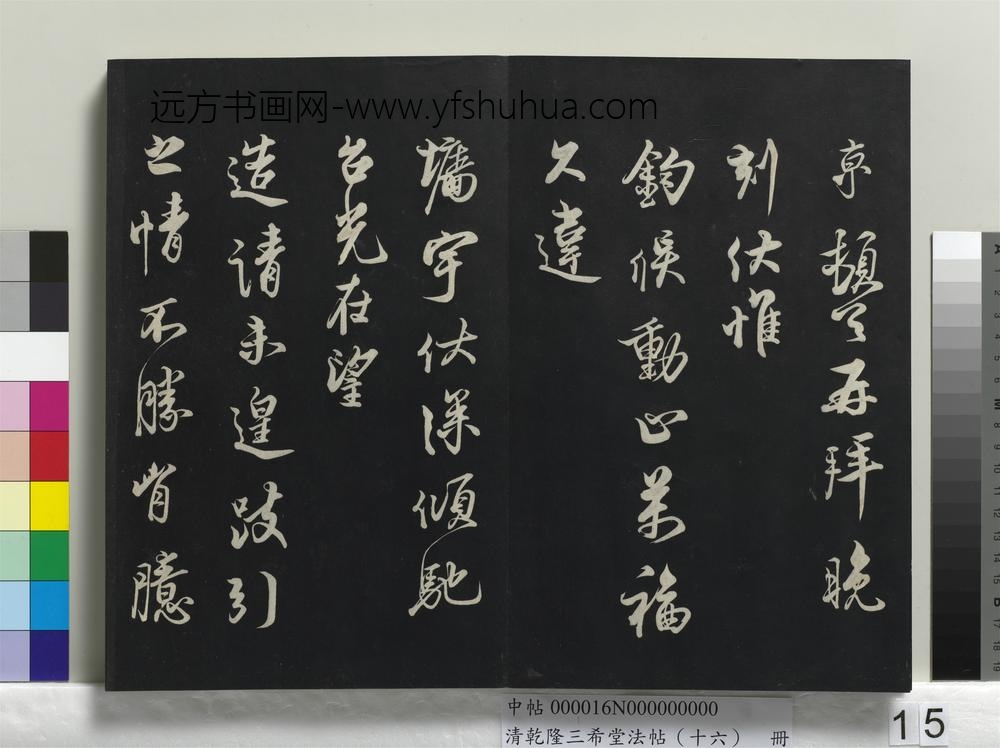 远方书画网-www.yfshuhua.com
京頓首再拜晚
刻伏惟
鈞候動止萬福
久違
墻宇伏深傾馳
台光在望
造請未遑跂引
之情不勝胷臆
中帖 000016N000000000
清乾隆三希堂法帖（十六） 冊
15